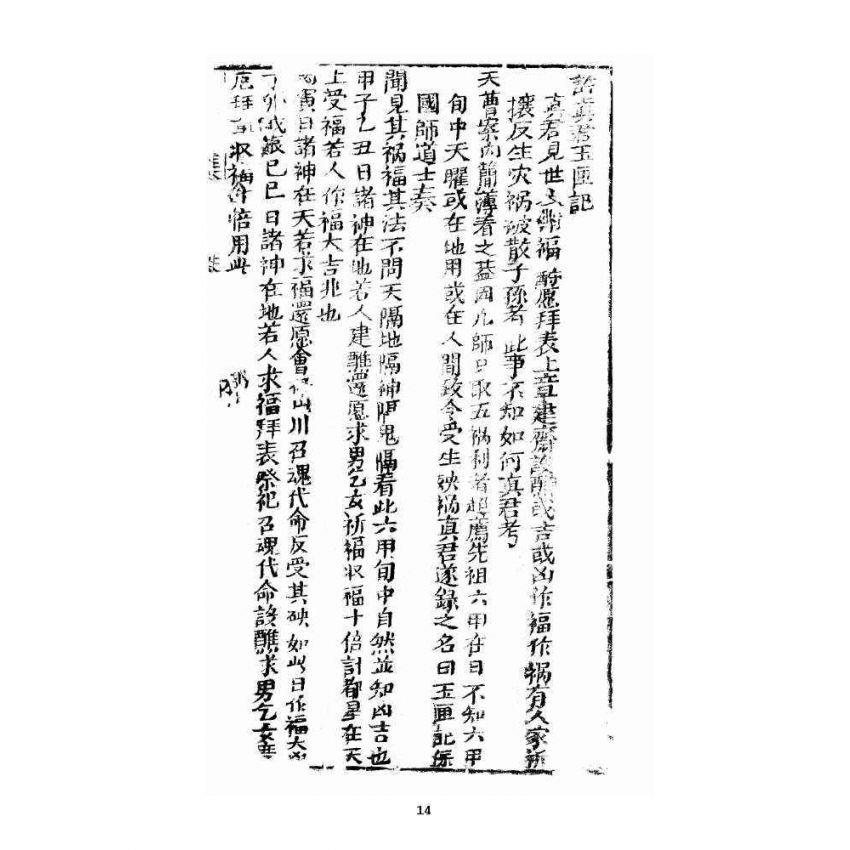 許真君玉匣記
真君見世人樂福酧愿拜表上章建齋設醮或吉或凶作福作禍有人家祈
攘反生灾禍破散子孫者此事不知如何真君考
天曹案內簡薄看之葢因凡師只取五禍利者超薦先祖六甲在日不知六甲
旬中天曜或在地用或在人間致令受生殃禍真君遂錄之名曰玉匣記
國師道士奏
聞見其禍福其法不問天隔地隔神隔鬼隔看此六甲旬中自然並知凶吉也
甲子乙丑日諸神在地若人建醮還愿求男乞女祈福収福十倍計都星在天
上受福若人作福大吉兆也
寅日諸神在天若求福還愿會山川召魂代命反受其殃如此日作福大凶
己巳日諸神在地若人求福拜表祭祀召魂代命設醮求男乞女
拜倍用此
14